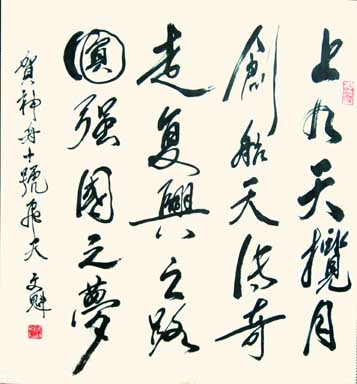 上九天攬月
創航天传奇
走复興之路
圓强國之夢
賀神舟十號飛天 文魁